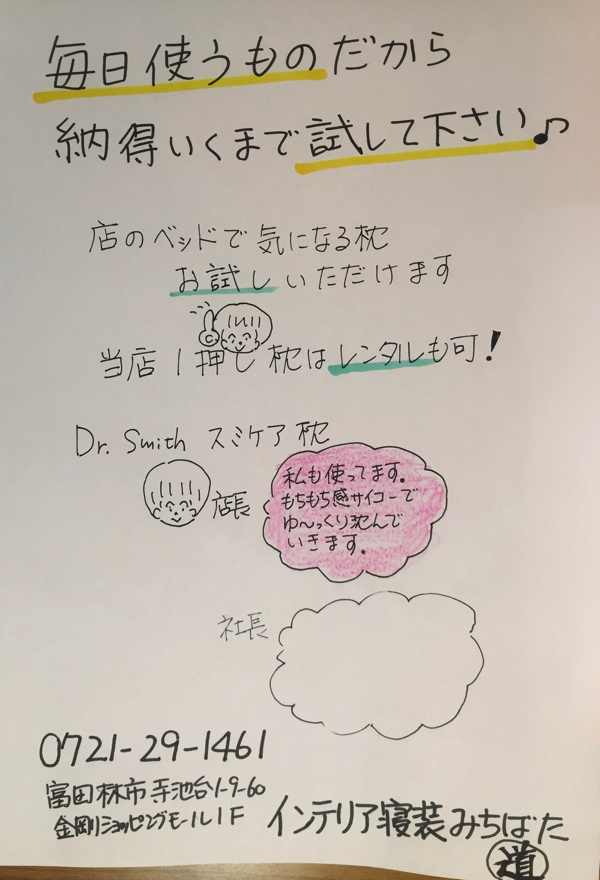 毎日使うものだから
納得いくまで試して下さい♪
店のベッドで気になる枕
お試しいただけます
当店1押し枕はレンタルも可!
Dr. Smith スミケア枕
店長
私も使ってます。
もちもち感サイコーで
ゆ〜っくり沈んで
いきます。
社長
0721-29-1461
富田林市寺池台1-9-60
金剛ショッピングモール1F
インテリア寝装みちばた
道